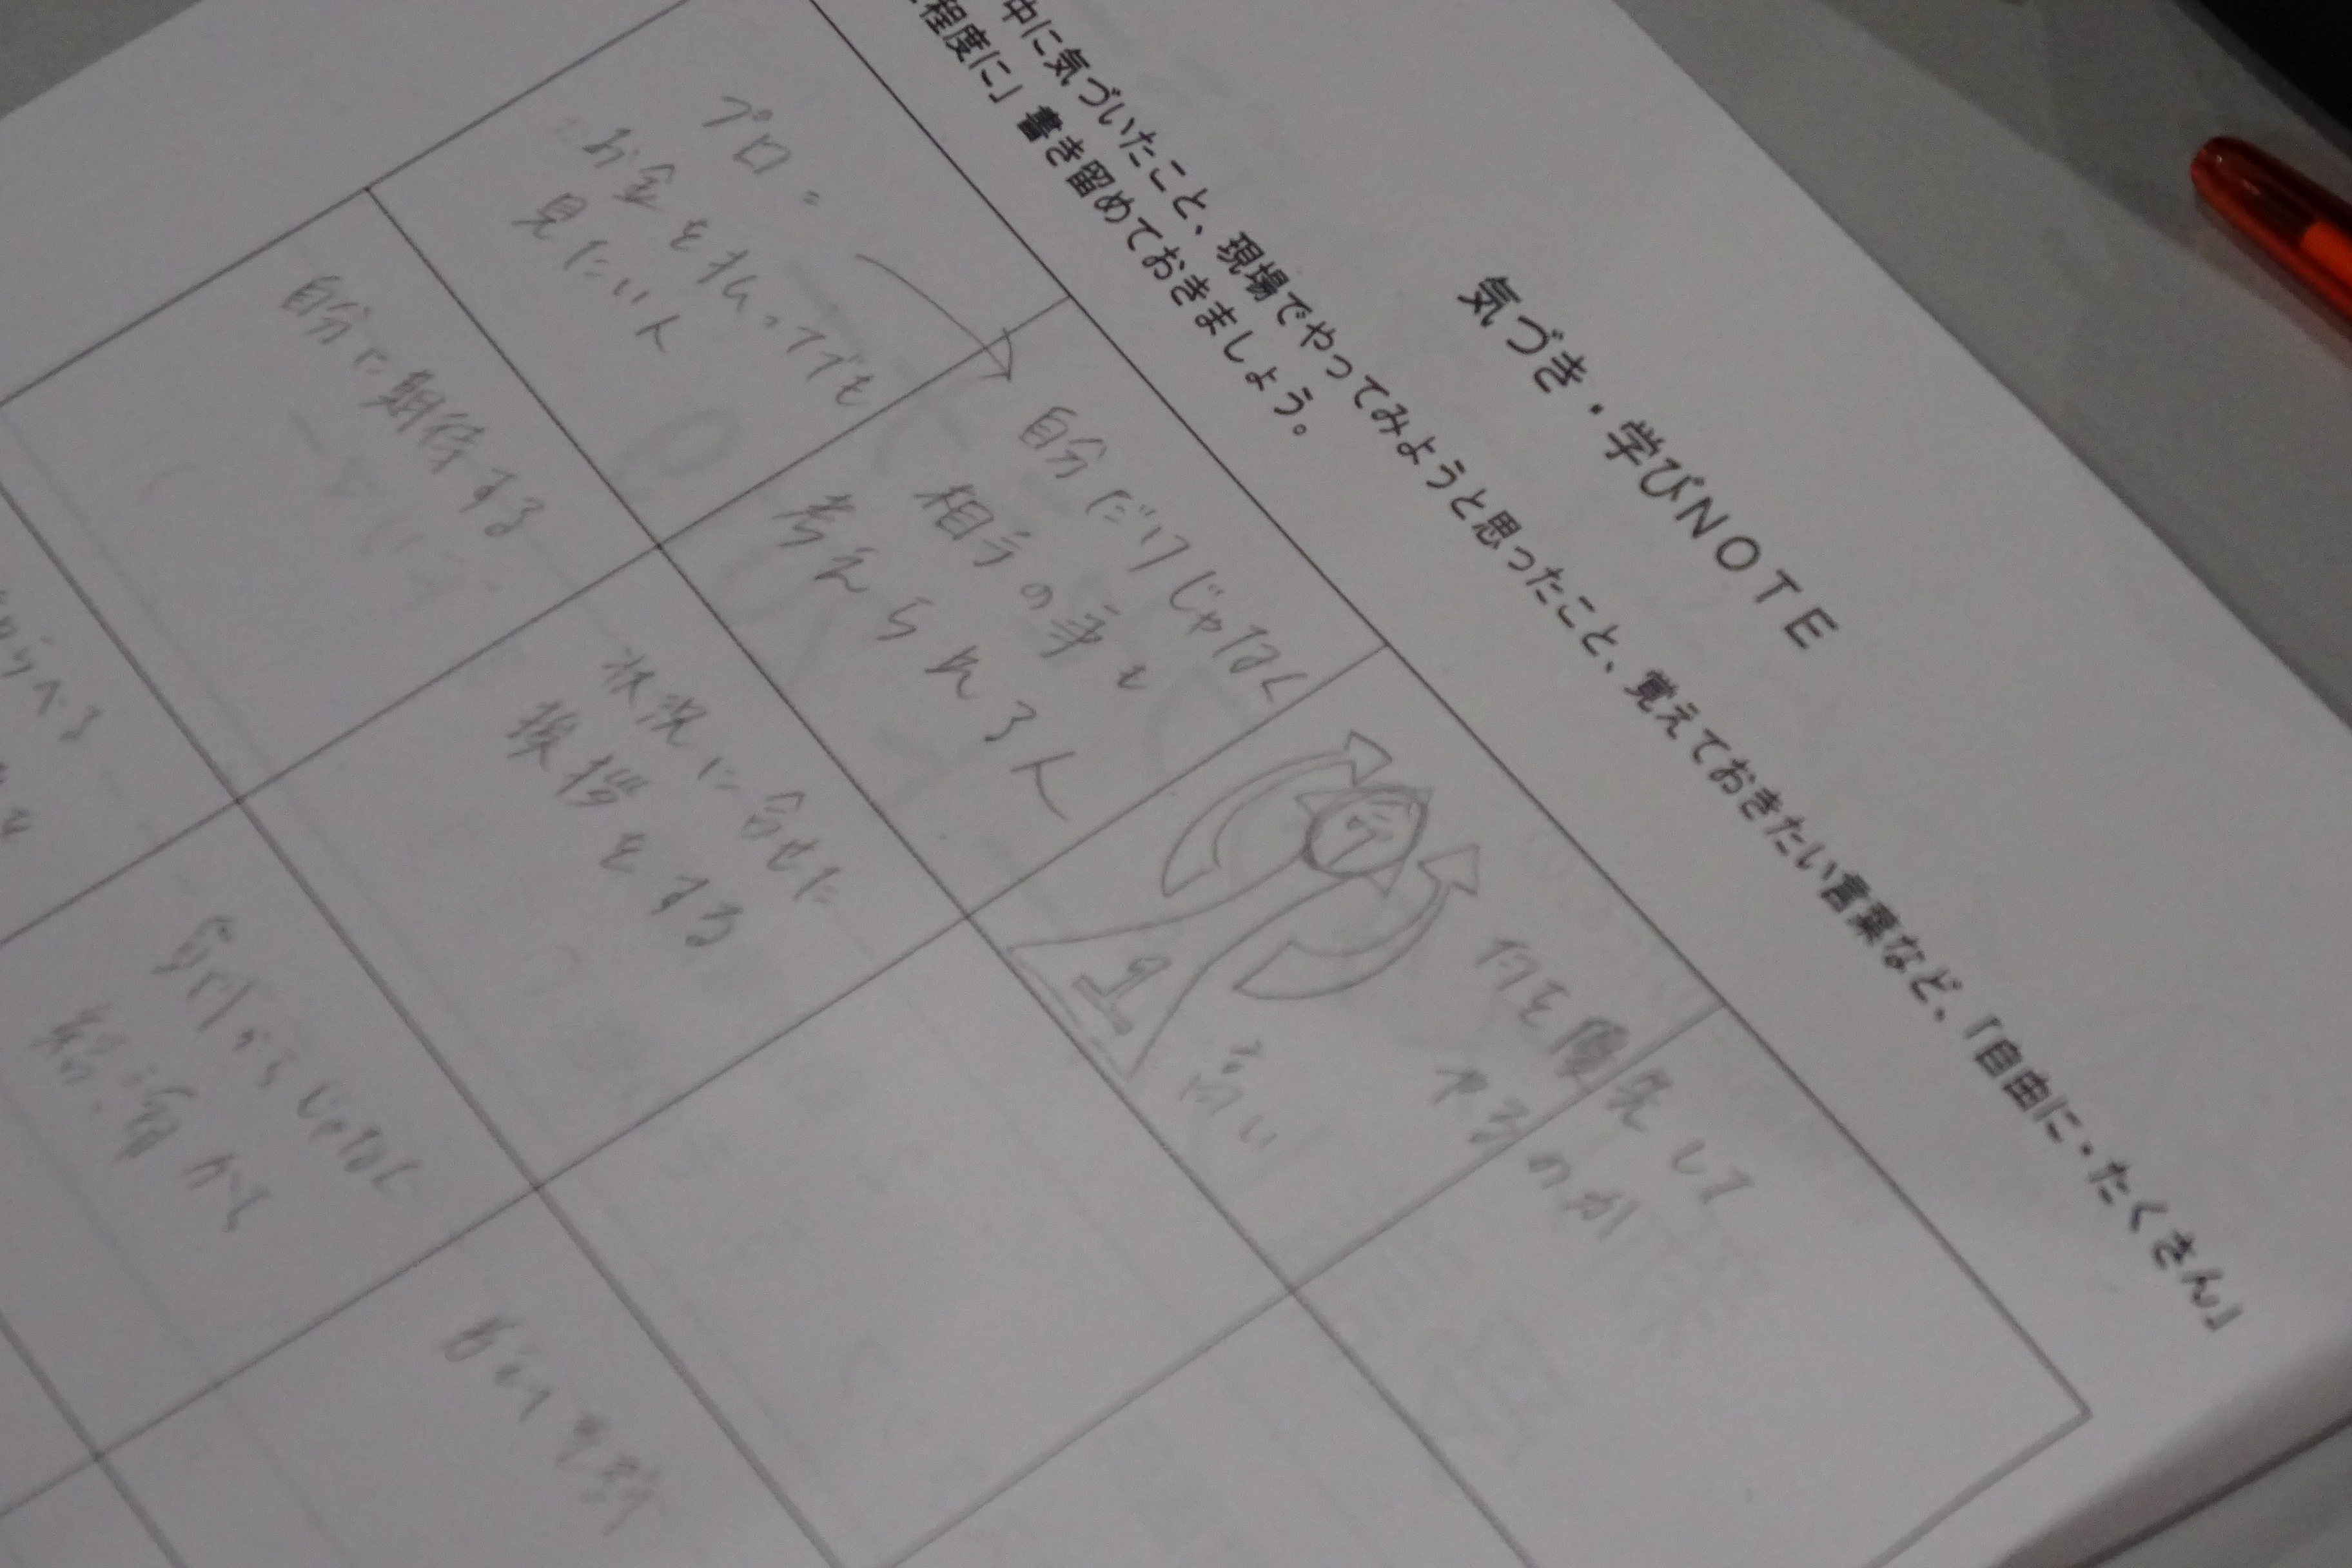 気づき・学びNOTE
中に気づいたこと、現場でやってみようと思ったこと、覚えておきたい言葉など、「自由に・たくさん」
程度に」書き留めておきましょう。
プロ=
お金を払ってでも
見たい人
自分だけじゃなく
相手の事も
考えられる人
1
高い
何を優先して
やるのか
自分に期待する
状況に合せた
挨拶をする
べる
からじゃなく
から